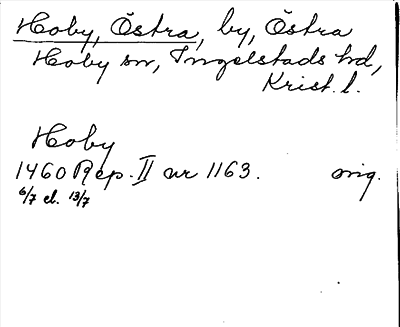 Hoby, Östra, by, Östra
Hoby sn, Ingelstads hd,
Krist. l.
Hoby
1460 Rep. II nr 1163. orig.
6/7 el. 13/7